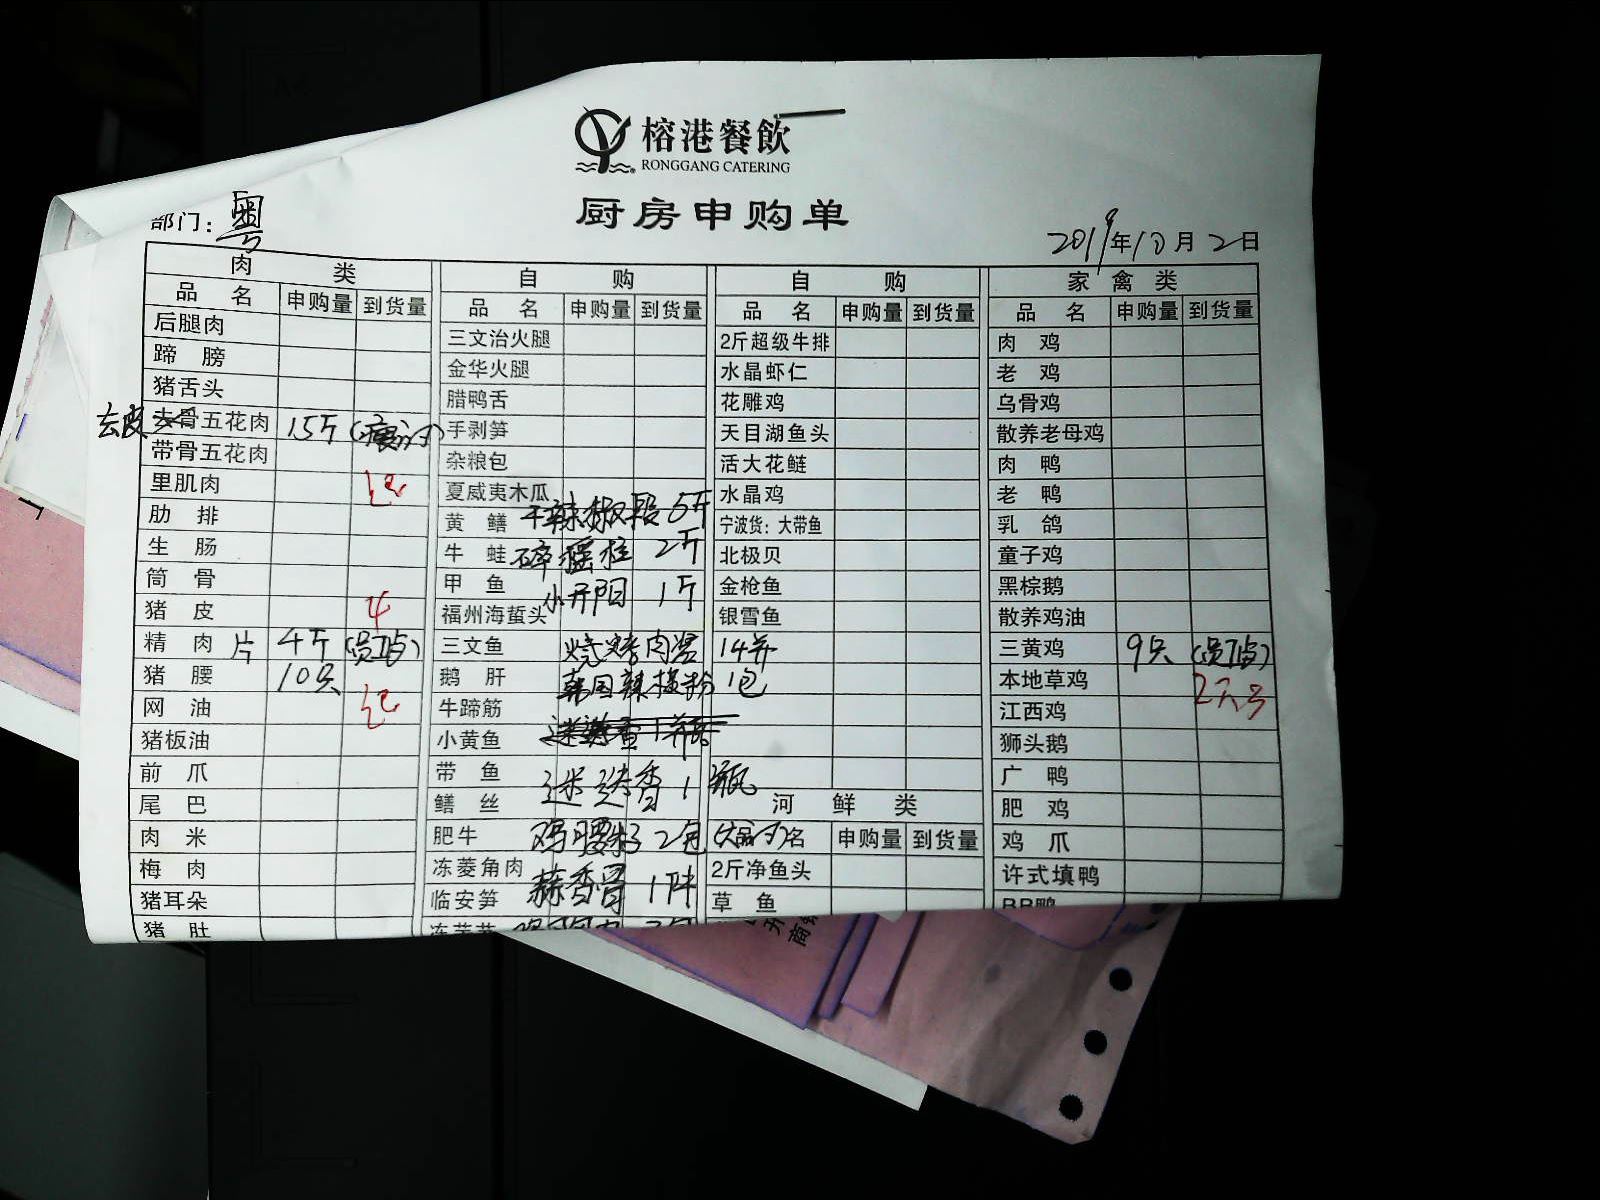 榕港餐飲
RONGGANG CATERING
厨房申购单
部门：粤
2019年10月2日
肉 类 自 购 自 购 家 禽 类
品 名 申购量 到货量 品 名 申购量 到货量 品 名 申购量 到货量 品 名 申购量 到货量
后腿肉 三文治火腿 2斤超级牛排 肉 鸡
蹄 膀 金华火腿 水晶虾仁 老 鸡
猪舌头 腊鸭舌 花雕鸡 乌骨鸡
去皮 去骨五花肉 15斤 手剥笋 天目湖鱼头 散养老母鸡
带骨五花肉 杂粮包 活大花鲢 肉 鸭
里肌肉 夏威夷木瓜 水晶鸡 老 鸭
肋 排 黄 鳝 干辣椒段 5斤 宁波货：大带鱼 乳 鸽
生 肠 牛 蛙 碎瑶柱 2斤 北极贝 童子鸡
筒 骨 甲 鱼 小开阳 1斤 金枪鱼 黑棕鹅
猪 皮 福州海蜇头 银雪鱼 散养鸡油
精 肉 片 4斤 (员工店) 三文鱼 烧烤肉酱 14并 三黄鸡 9只 (员工店)
猪 腰 10只 鹅 肝 韩国辣椒粉 1包 本地草鸡
网 油 牛蹄筋 江西鸡
猪板油 小黄鱼 狮头鹅
前 爪 带 鱼 迷迭香 1瓶 广 鸭
尾 巴 鳝 丝 河 鲜 类 肥 鸡
肉 米 肥牛 2包 品 名 申购量 到货量 鸡 爪
梅 肉 冻菱角肉 蒜香骨 1件 2斤净鱼头 许式填鸭
猪耳朵 临安笋 草 鱼
猪 肚